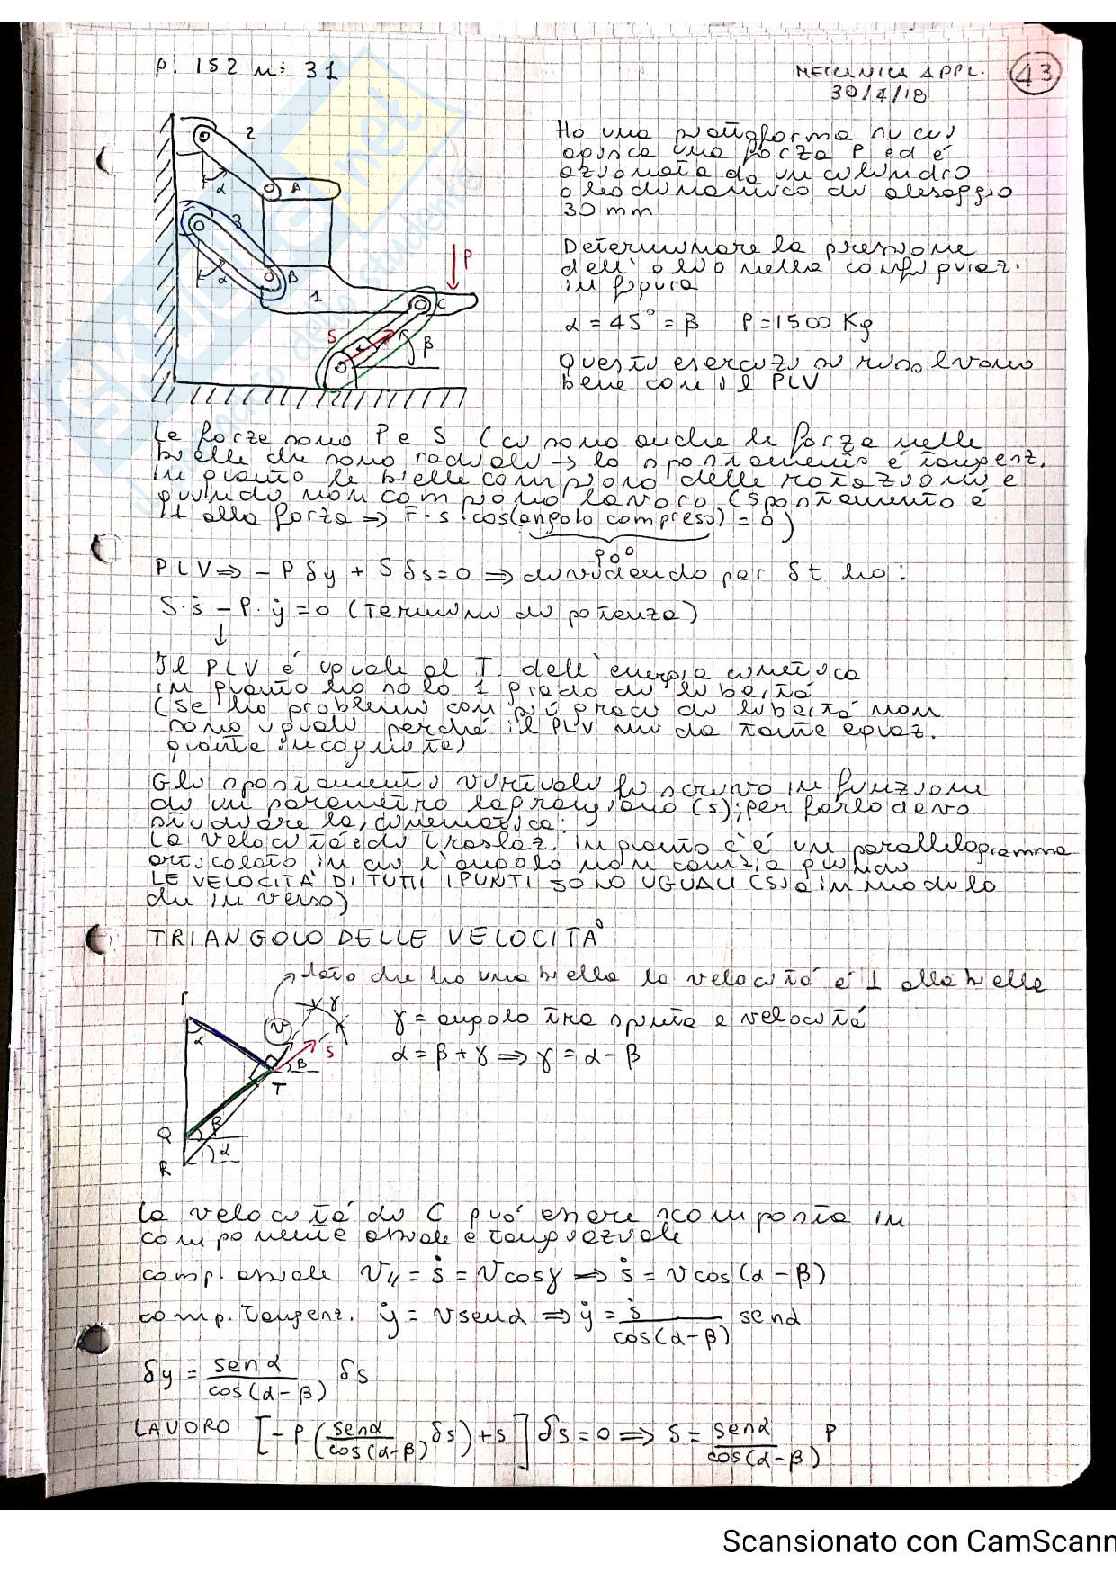 p. 152 n: 31
MECCANICA APPL. 43
30/4/18
2
α
A
3
α
B
1
P
C
S
β
Ho una piattaforma su cui
agisce una forza P ed è
azionata da un cilindro
oleodinamico di alesaggio
30 mm
Determinare la pressione
dell'olio nella configuraz.
in figura
α = 45° = β P = 1500 Kg
Questi esercizi si risolvono
bene con il PLV
Le forze sono P e S (ci sono anche le forze nelle
bielle che sono radiali → lo spostamento è tangenz.
in quanto le bielle compiono delle rotazioni e
quindi non compiono lavoro (spostamento è
⊥ alla forza ⇒ F·s·cos(angolo compreso) = 0)
90°
PLV ⇒ -Pδy + Sδs = 0 ⇒ dividendo per δt ho:
S·ṡ - P·ẏ = 0 (termini di potenza)
↓
Il PLV è uguale al T. dell'energia cinetica
in quanto ho solo 1 grado di libertà
(se ho problemi con più gradi di libertà non
sono uguali perché il PLV mi da tante equaz.
quante incognite)
Gli spostamenti virtuali li scrivo in funzione
di un parametro lagrangiano (s); per farlo devo
studiare la cinematica:
la velocità è di traslaz. in quanto c'è un parallelogramma
articolato in cui l'angolo non cambia quindi
LE VELOCITÀ DI TUTTI I PUNTI SONO UGUALI (sia in modulo
che in verso)
TRIANGOLO DELLE VELOCITÀ
dato che ho una biella la velocità è ⊥ alla biella
α
v
γ
S
β
T
Q
β
α
R
γ = angolo tra spinta e velocità
α = β + γ ⇒ γ = α - β
la velocità di C può essere scomposta in
componente assiale e tangenziale
comp. assiale V// = ṡ = V cosγ ⇒ ṡ = V cos(α - β)
comp. tangenz. ẏ = V senα ⇒ ẏ = ṡ/cos(α-β) senα
δy = senα/cos(α-β) δs
LAVORO [-P(senα/cos(α-β) δs) + s] δs = 0 ⇒ S = senα/cos(α-β) P
Scansionato con CamScann